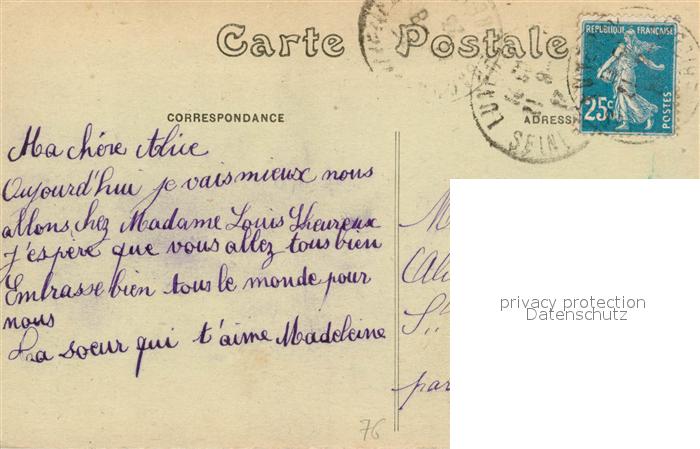 Carte Postale
RÉPUBLIQUE FRANÇAISE
25c
POSTES
CORRESPONDANCE
ADRESS
Ma chère Alice
Aujourd'hui je vais mieux nous
allons chez Madame Louis Lheureux
J'espère que vous allez tous bien
Embrasse bien tous le monde pour
nous
Ta soeur qui t'aime Madeleine
M
Ali
S
par
privacy protection
Datenschutz
76